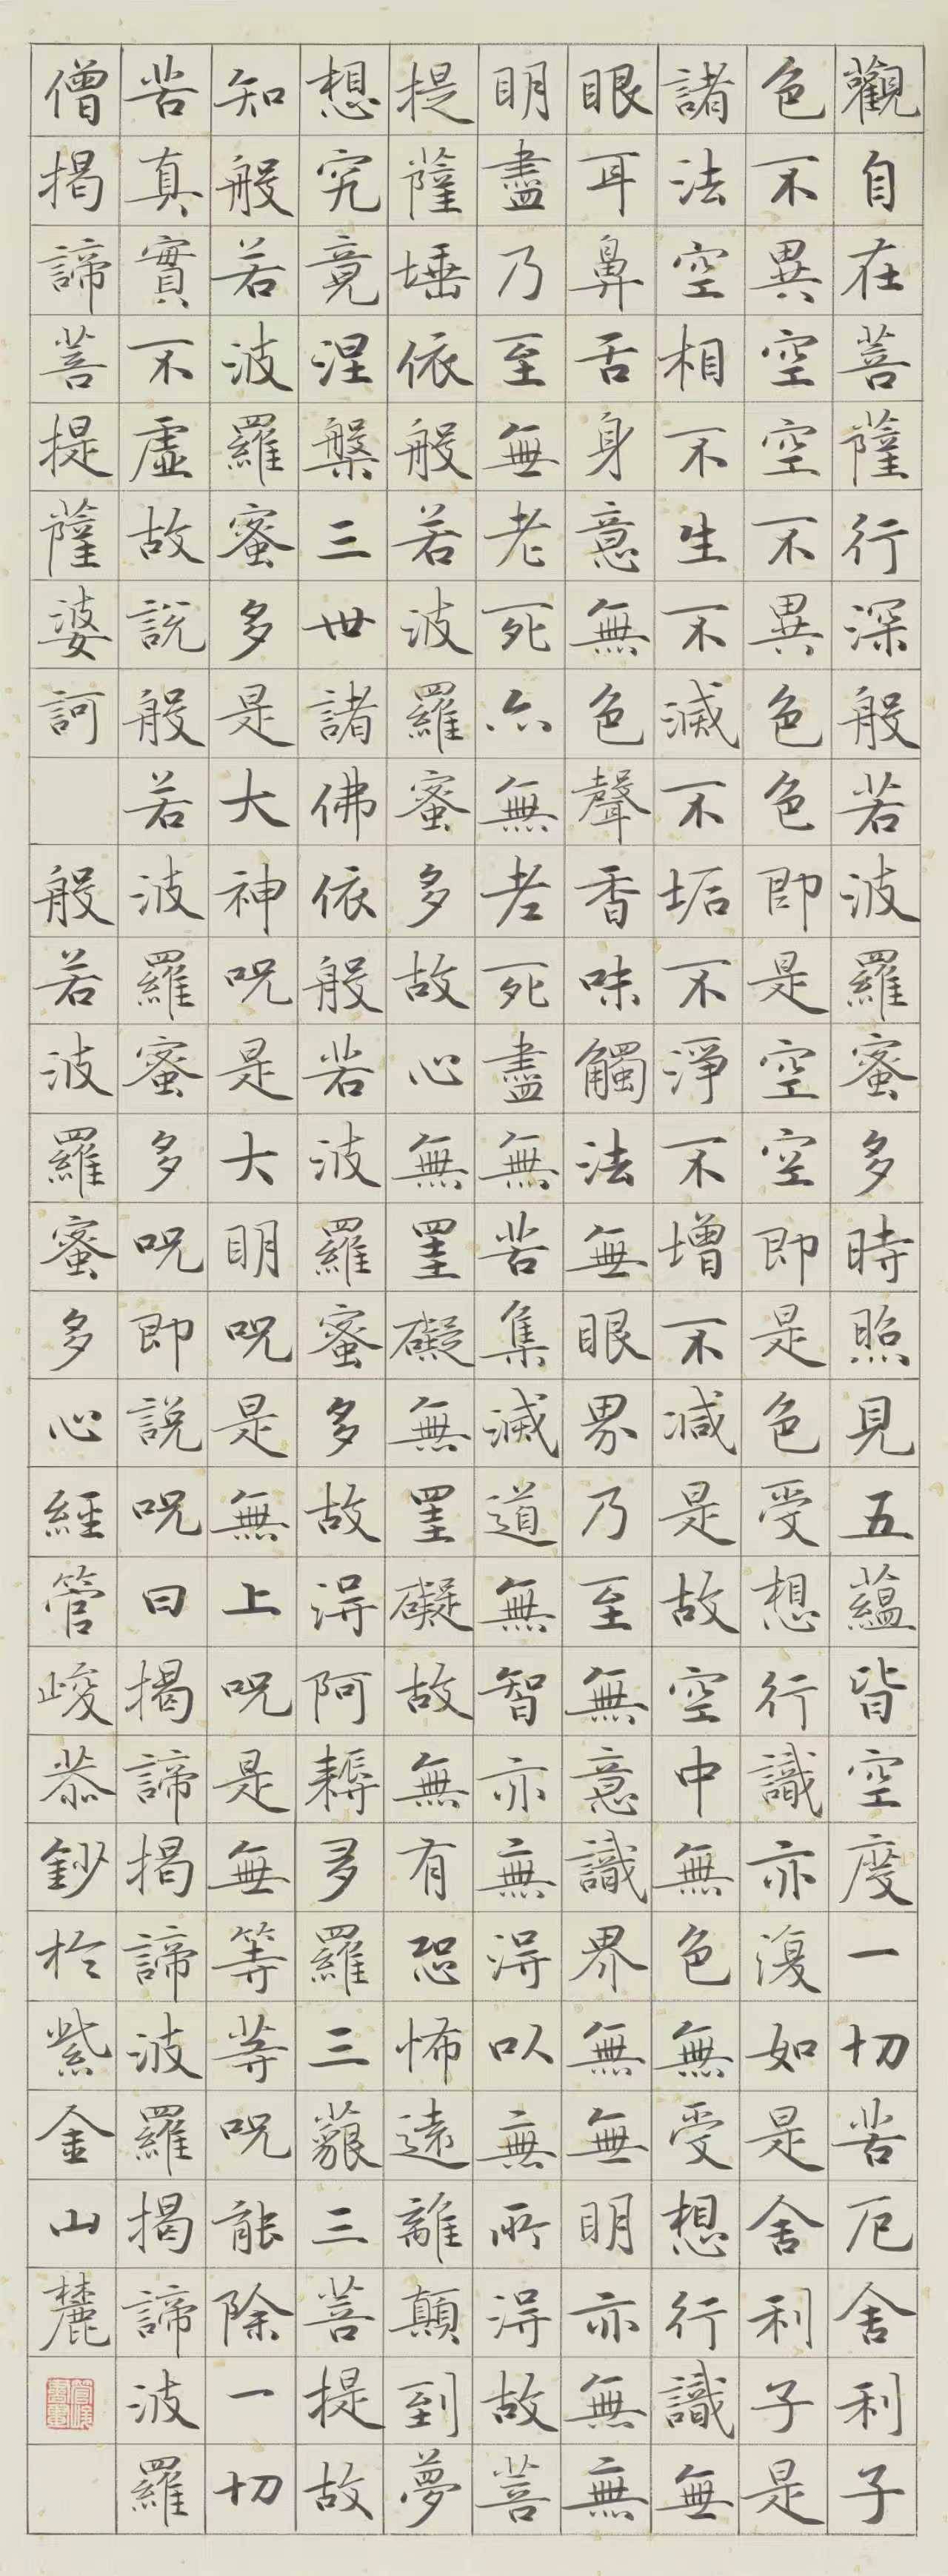 觀自在菩薩行深般若波羅蜜多時照見五蘊皆空度一切苦厄舍利子
色不異空空不異色色即是空空即是色受想行識亦復如是舍利子是
諸法空相不生不滅不垢不淨不增不減是故空中無色無受想行識無
眼耳鼻舌身意無色聲香味觸法無眼界乃至無意識界無無明亦無無
明盡乃至無老死亦無老死盡無苦集滅道無智亦無得以無所得故菩
提薩埵依般若波羅蜜多故心無罣礙無罣礙故無有恐怖遠離顛到夢
想究竟涅槃三世諸佛依般若波羅蜜多故得阿耨多羅三藐三菩提故
知般若波羅蜜多是大神咒是大明咒是無上咒是無等等咒能除一切
苦真實不虛故說般若波羅蜜多咒即說咒曰揭諦揭諦波羅揭諦波羅
僧揭諦菩提薩婆訶 般若波羅蜜多心經管峻恭鈔於紫金山麓